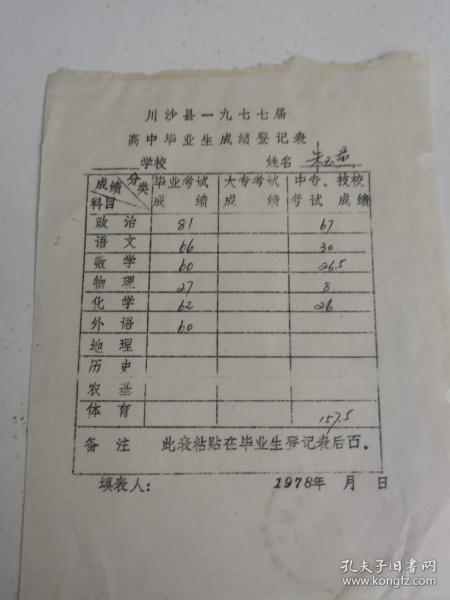 川沙县一九七七届
高中毕业生成绩登记表
学校 姓名
成绩 分类 科目 毕业考试成绩 大专考试成绩 中专、技校考试成绩
政治 81 67
语文 66 30
数学 60 26.5
物理 27 8
化学 62 26
外语 60
地理
历史
农基
体育 157.5
备注 此表粘贴在毕业生登记表后百.
填表人: 1978年 月 日
孔夫子旧书网
www.kongfz.com